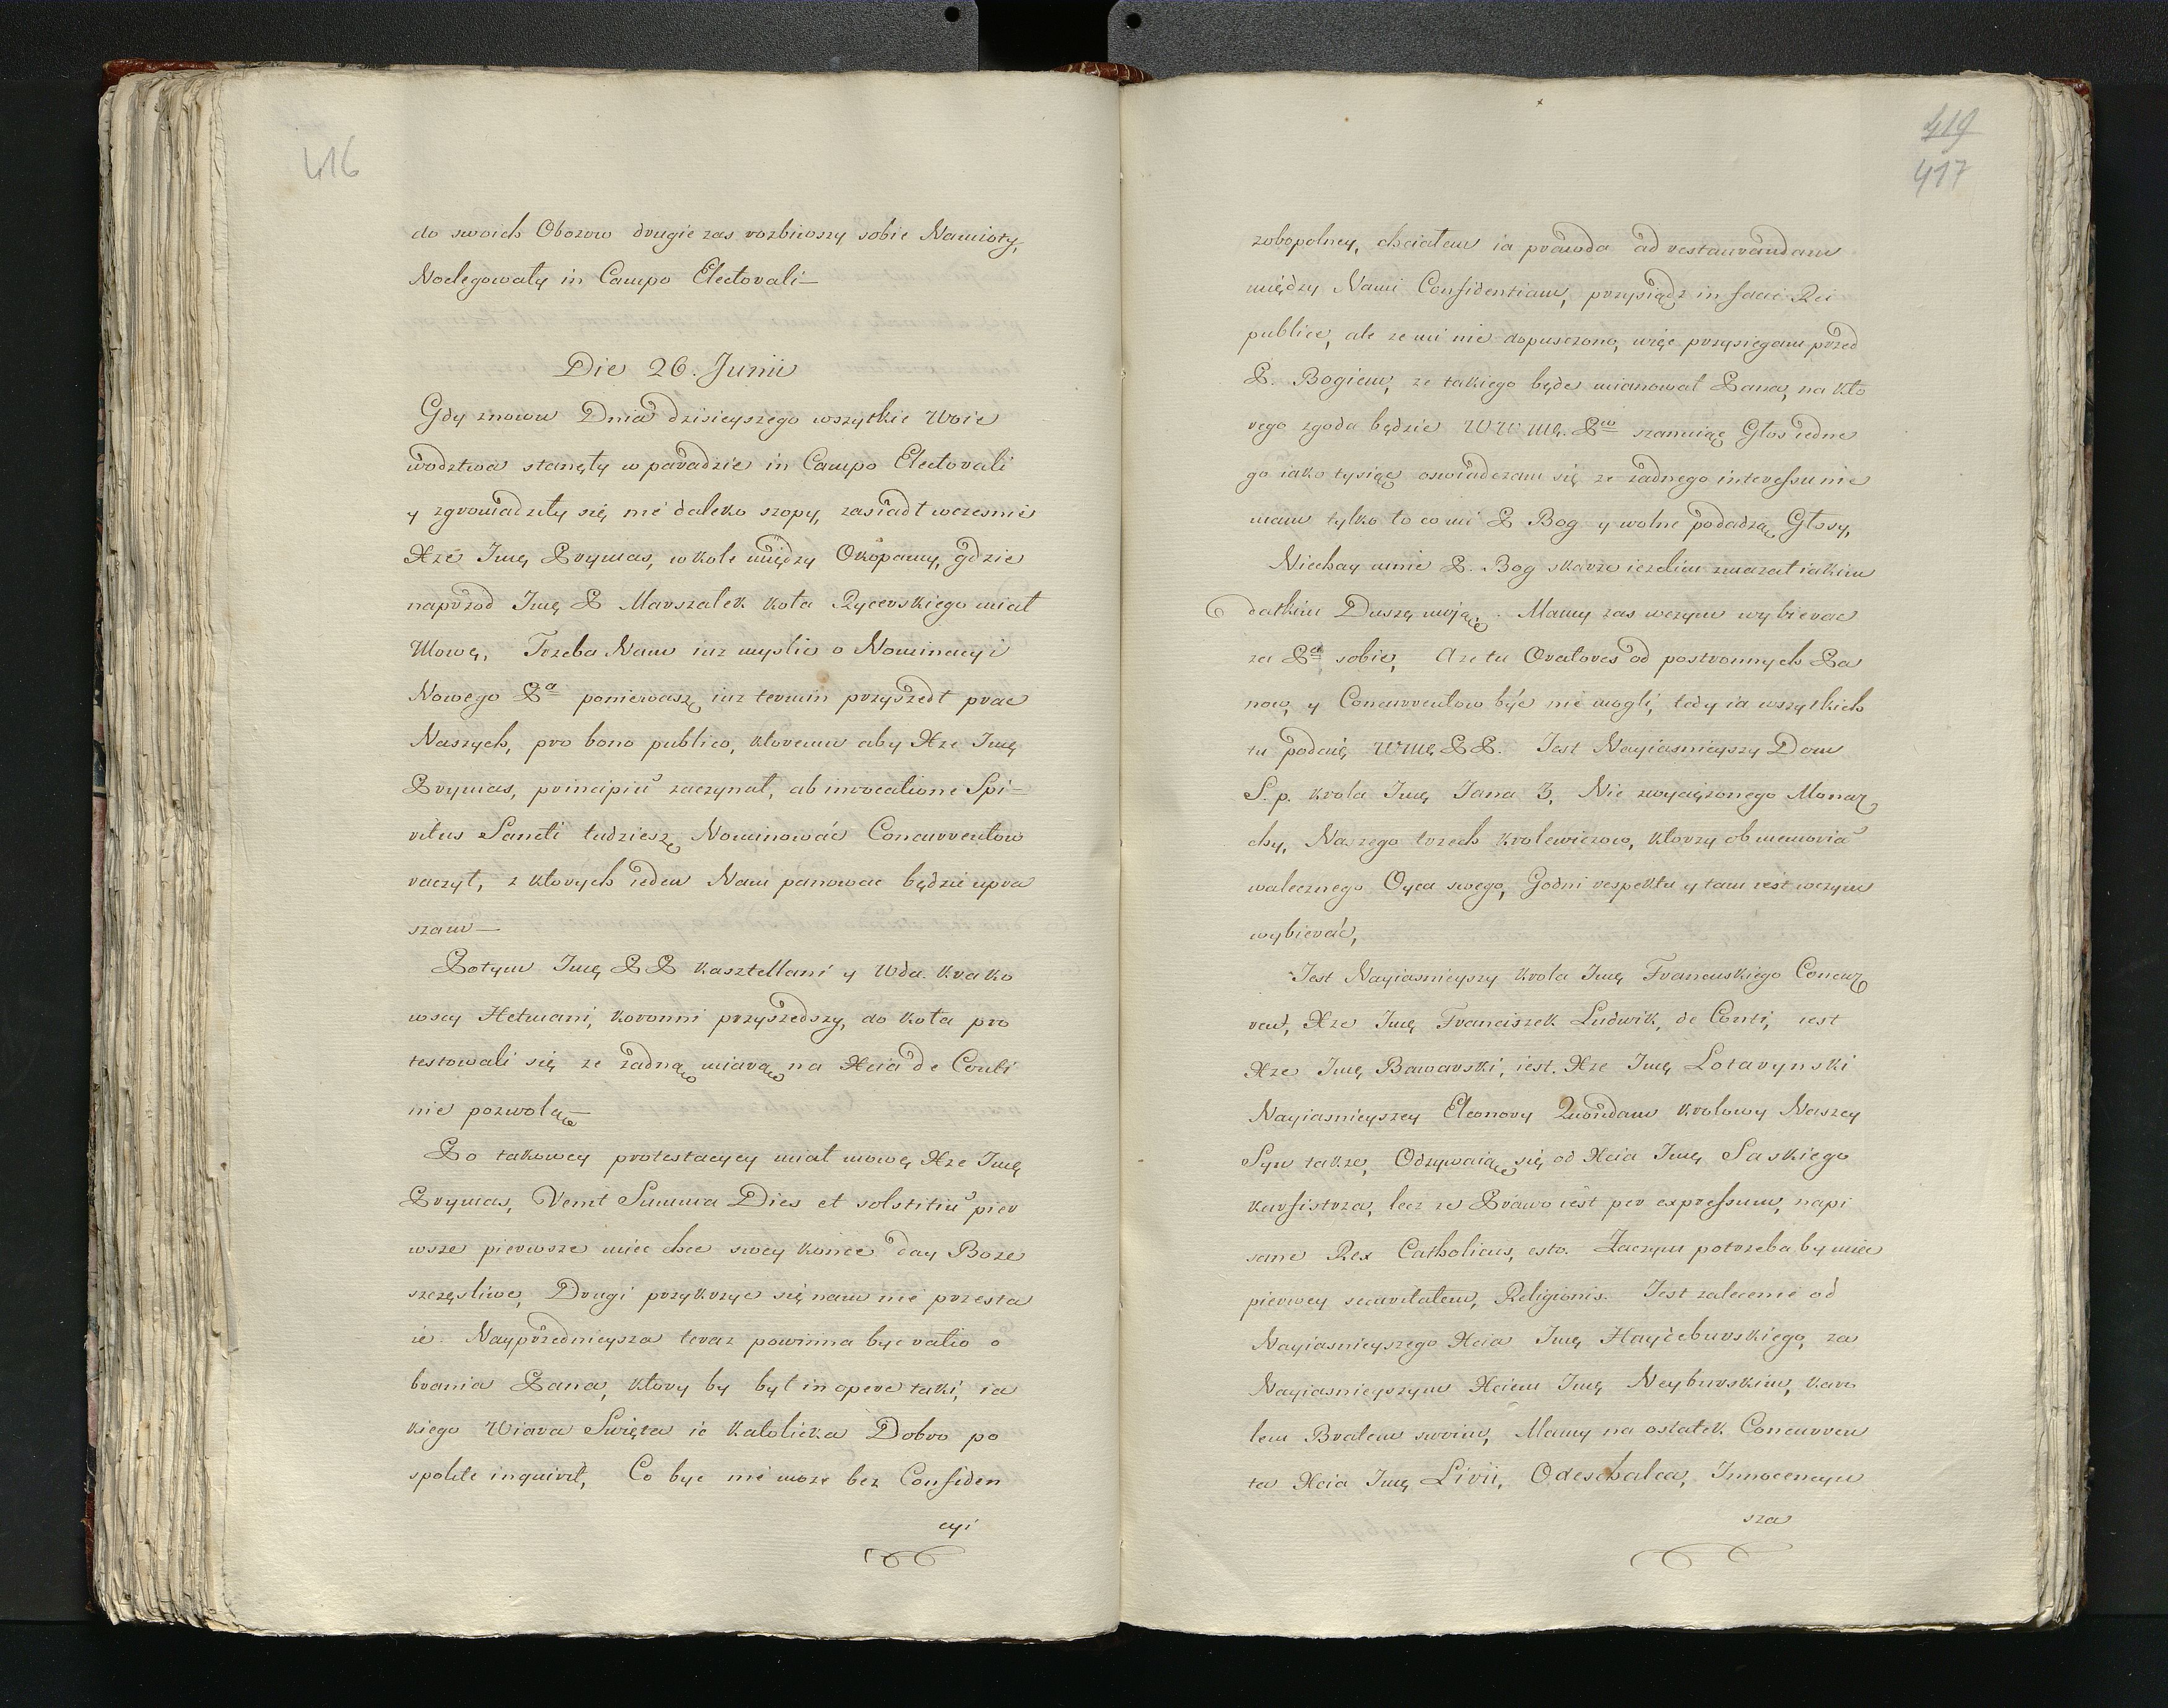 416
do swoich Obozow drugie zas rozbiwszy sobie Namioty,
Noclegowały in Campo Electorali—
Die 26. Junii
Gdy znowu Dnia dzisieyszego wszytkie Woie
wodztwa stanęły w paradzie in Campo Electorali
y zgromadziły się nie daleko szopy, zasiadł wczesnie
Xze Jmę Prymas, w kole między Okopamy, gdzie
naprzod Jmę P Marszalek koła Rycerskiego miał
Mowę, Trzeba Nam iuz myslic o Nominacyi
Nowego Pa poniewasz iuz termin przyszedł prac
Naszych, pro bono publico, ktoremu aby Xze Jmę
Prymas, principiu zaczynał, ab invocatione Spi-
ritus Sancti tudziesz Nominować Concurrentow
raczył, z ktorych ieden Nam panowac będzie upra
szam—
Potym Jmę PP kasztellani y Wda. krako
wscy Hetmani, koronni przyszedszy, do koła pro
testowali się ze zadną miarą na Xcia de Conti
nie pozwolą—
Po takowey protestacyey miał mowę Xze Jmę
Prymas, Venit Summa Dies et solstitiu pier
wsze pierwsze miec chce swey konce day Boze
szczęsliwe, Drugi przykrzyc się nam nie przesta
ie. Nayprzednieysza teraz powinna byc ratio o
brania Pana, ktory by był in opere taki, ia
kiego Wiara Swięta ie katolicka Dobro po
spolite inquirit, Co byc nie moze bez Confiden
cyi
419
417
zobopolney, chciałem ia prawda ad restaurandam
między Nami Confidentiam, przysiądz in facie Rei
publice, ale ze mi nie dopusczono, więc przysiegam przed
P. Bogiem, ze takiego będe mianował Pana, na kto
rego zgoda będzie WWMę. Pw szanuię Głos iedne
go iako tysiąc oswiadczam się ze żadnego interessu nie
mam tylko to co mi P Bog y wolne podadzą Głosy,
Niechay mnie P. Bog skarze iezelim zmazał iakim
datkiem Duszę moję. Mamy zas wczym wybierac
za Pa sobie, A ze tu Oratores od postronnych Pa
now, y Concurrentow być nie mogli, tedy ia wszytkich
tu podaię WMę PP. Jest Nayiasnieyszy Dom
S. p. krola Jmę Jana 3, Nie zwyciężonego Monar
chy, Naszego trzech krolewiczow, ktorzy ob memoria
walecznego Oyca swego, Godni respektu y tam iest wczym
wybierać,
Jest Nayiasnieyszy krola Jmę Francuskiego Concur
rent, Xze Jmę Franciszek Ludwik, de Conti, iest
Xze Jmę Bawarski, iest. Xze Jmę Lotarynski
Nayiasnieyszey Eleonory Quondam krolowy Naszey
Syn takze, Odzywaią się od Xcia Jmę Saskiego
kurfistrza, lecz ze Prawo iest per expressum, napi
sane Rex Catholicus, esto. Zaczym potrzeba by miec
pierwey securitatem, Religionis. Jest zalecenie od
Nayiasnieyszego Xcia Jmę Haydeburskiego, za
Nayiasnieyszym Xciem Jmę Neyburskim, karo
lem Bratem swoim, Mamy na ostatek Concurren
ta Xcia Jmę Livii, Odeschalca, Innocencyu
sza